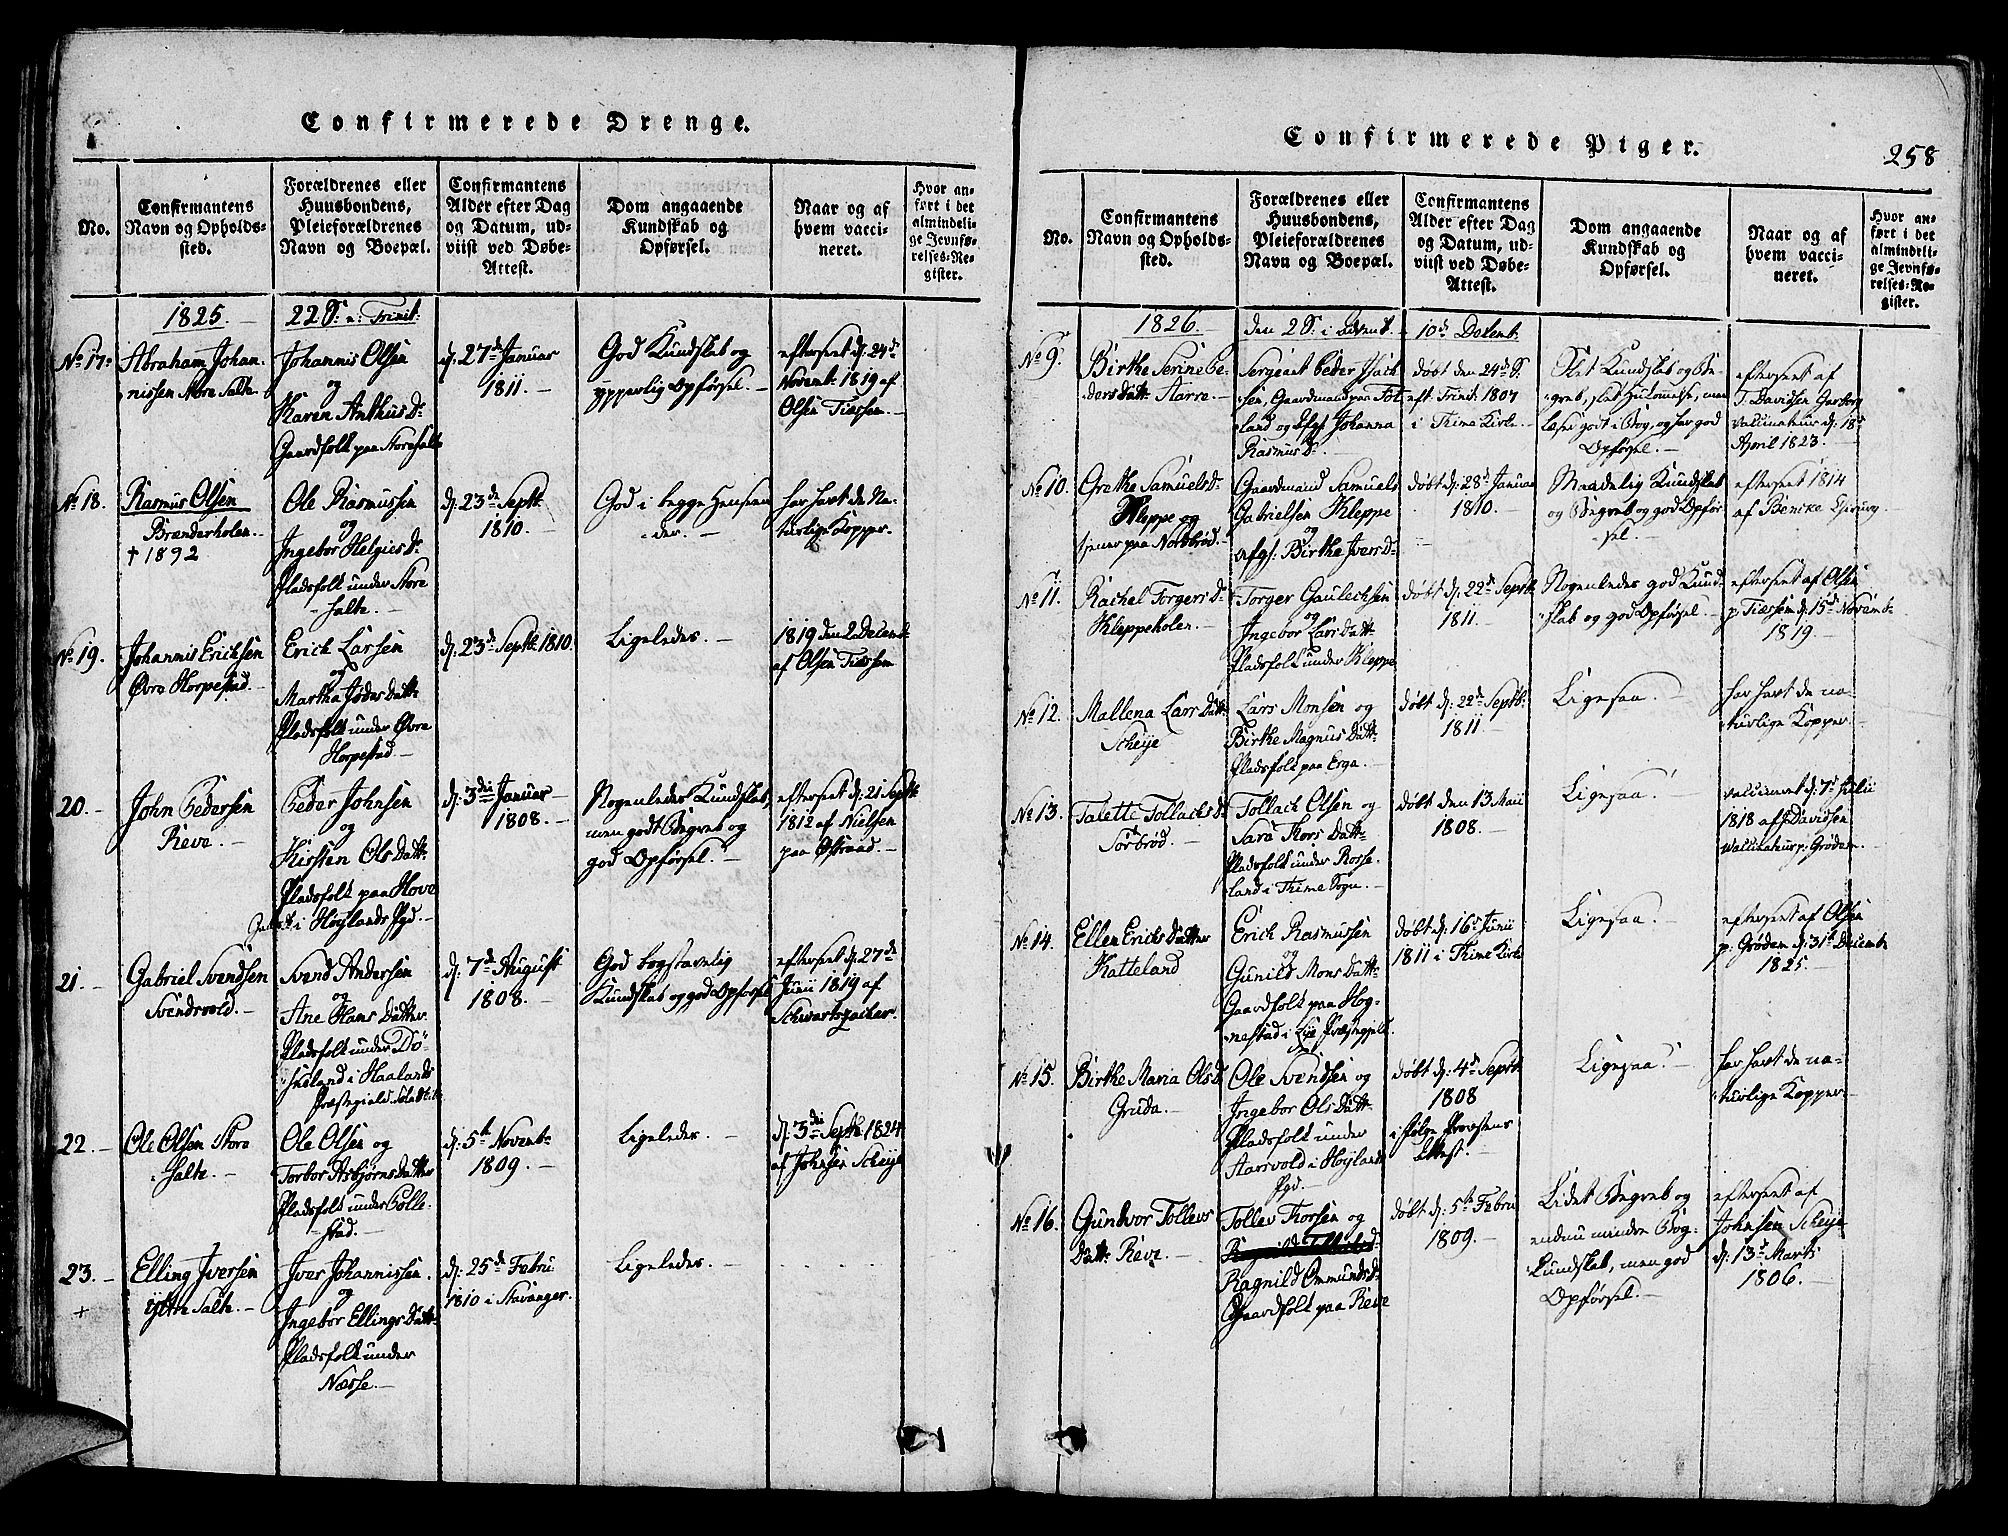 Confirmerede Drenge.
No.
Confirmantens
Navn og Opholds-
sted.
Forældrenes eller
Huusbondens,
Pleieforældrenes
Navn og Boepæl.
Confirmantens
Alder efter Dag
og Datum, ud-
viist ved Døbe-
Attest.
Dom angaaende
Kundskab og
Opførsel.
Naar og af
hvem vacci-
neret.
Hvor an-
ført i det
almindeli-
ge Jevnfø-
relses-Re-
gister.
1825.
22 S. n: Trinit:
No 17.
Abraham Johan-
nissen Store Salte.
Johannis Olsen
og
Karen Anthus D.
Gaardfolk paa Store Salte
d. 27de Januar
1811.
God Kundskab og
ypperlig Opførsel.
efterseet d. 24de
Novemb. 1819 af
Olsen Tiessem.
No 18.
Rasmus Olsen
Brænderholen.
† 1892
Ole Rasmussen
og
Ingebor Helgies D.
Pladsfolk under Store
Salte.
d. 23de Septbr.
1810.
God i begge Hensen-
der.
har havt de Na-
turlige Kopper.
No 19.
Johannis Ericksen
Øvre Horpestad.
Erick Larsen
og
Martha Jødes Datter
Pladsfolk under Øvre
Horpestad
d. 23de Septb. 1810.
Ligeledes.
1819 den 2 Decemb.
af Olsen Tiessem
20.
John Pedersen
Reve.
Peder Johnsen
og
Kirsten Ols Datter
Pladsfolk paa Hove
i Høylands Pgd.
d. 3die Januar
1808.
Nogenledes Kundskab,
men godt Begreb og
god Opførsel.
efterseet d. 21 Septb.
1812 af Nielsen
paa Østraad.
21.
Gabriel Svendsen
Svendsvold.
Svend Andersen
og
Ane Hans Datter
Pladsfolk under Dø-
sieland i Haalands
Præstegield.
d. 7de August
1808.
God bogstavelig
Kundskab og god Opførsel
efterseet d. 27de
Junii 1819 af
Schwartzacker.
22.
Ole Olsen Store
Salte.
Ole Olsen og
Torbor Asbjørns Datter
Pladsfolk under Polle-
stad.
d. 5te Novemb.
1809.
Ligeledes.
d. 3die Septb. 1824
af Johnsen Scheye
23.
+
Elling Iversen
ytte Salte.
Iver Johannissen.
og
Ingebor Ellings Datt.
Pladsfolk under
Næsse.
d. 25de Febru.
1810 i Stavanger.
Ligeledes.
Confirmerede Piger.
258
No.
Confirmantens
Navn og Opholds-
sted.
Forældrenes eller
Huusbondens,
Pleieforældrenes
Navn og Boepæl.
Confirmantens
Alder efter Dag
og Datum, ud-
viist ved Døbe-
Attest.
Dom angaaende
Kundskab og
Opførsel.
Naar og af
hvem vacci-
neret.
Hvor an-
ført i det
almindeli-
ge Jevnfø-
relses-Re-
gister.
1826.
den 2 S. i Advent.
10de Decemb.
No 9.
Birthe Serine Pe-
ders Datt. Aarre.
Sergeant Peder Isach-
sen, Gaardmand paa Fot-
land og Afg. Johanna
Rasmus D.
døbt den 24de S.
eft. Trinit. 1807
i Thime Kirke.
Slet Kundskab og Be-
greb, slet Hukomelse, men
læser godt i Bog, og har god
Opførsel.
efterseet af
T. Davidsen Garborg
vaccinateur d. 18de
April 1823.
No 10.
Grethe Samuels D.
Kleppe og
tjener paa Nordbrød.
Gaardmand Samuel
Gabrielsen Kleppe
og
afg. Birthe Ivers D.
døbt d. 28de Januar
1810.
Maadelig Kundskab
og Begreb og god Opfør-
sel.
efterseet 1814
af Bencke
No 11.
Rachel Torgers D.
Kleppeholen.
Torger Gautechsen
og
Ingebor Lars Datt.
Pladsfolk under Kleppe
døbt d. 22de Septb.
1811.
Nogenledes god Kund-
skab og god Opførsel.
efterseet af Olsen
p. Tiessem d. 15de Novemb.
1819.
No 12.
Mallena Lars Datt.
Scheye
Lars Monsen og
Birthe Magnus Datt.
Pladsfolk paa Erga.
døbt d. 22de Septb.
1811.
Ligesaa.
har havt de na-
turlige Kopper.
No 13.
Talette Tollachs D.
Sørbrød.
Tollach Olsen og
Sara Thors Datt.
Pladsfolk under Rosse-
land i Thime Sogn.
døbt den 13 Maii
1808.
Ligesaa.
vaccineret d. 7de Julii
1818 af Davidsen
vaccinateur p. Grødem.
No 14.
Ellen Ericks Datter
Katteland
Erick Rasmussen
og
Gunild Mons Datt.
Gaardfolk paa Hog-
nestad i Lye Præstegjeld.
døbt d. 16de Junii
1811 i Thime Kirke
Ligesaa.
efterseet af Olsen
p. Grødem d. 31te Decemb.
1825.
No 15.
Birthe Maria Ols D.
Gruda.
Ole Svendsen og
Ingebor Ols Datt.
Pladsfolk under
Aarsvold i Høylands
Pgd.
døbt d. 4de Septb.
1808
i følge Præstens
Attest.
Ligesaa.
har havt de na-
turlige Kopper.
No 16.
Gundvor Tollevs
Datt. Reve.
Tollev Thorsen og
Ragnild Ommunds D.
Gaardfolk paa Reve
døbt d. 5te Febru.
1809.
Lidet Begreb og
endnu mindre Bog-
kundskab, men god
Opførsel.
efterseet af
Johnsen Scheye
d. 13de Marts
1806.